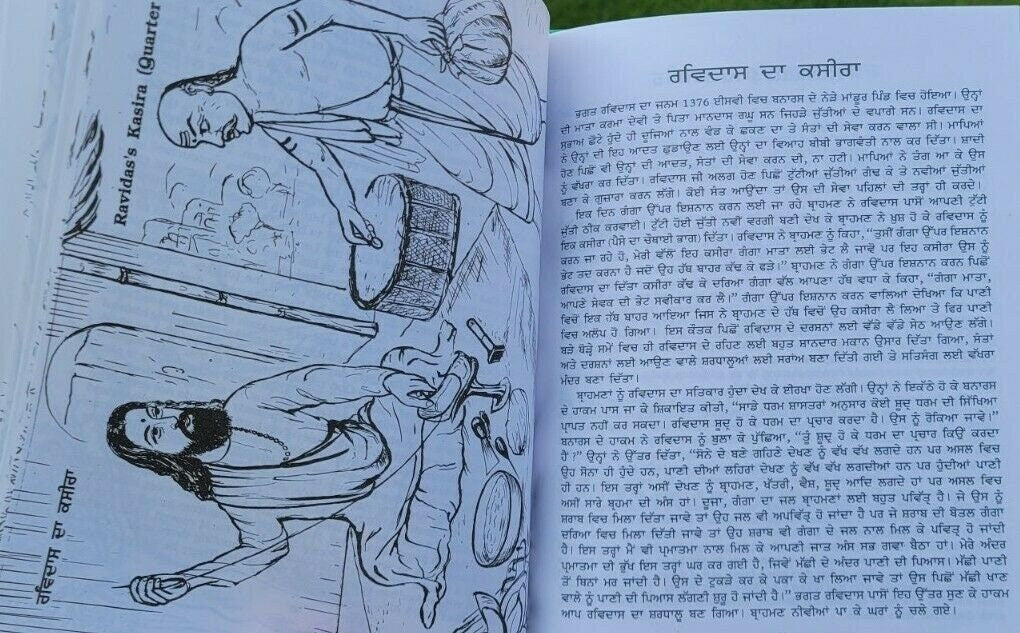 Ravidas's Kasira (Quarter
ਰਵਿਦਾਸ ਦਾ ਕਸੀਰਾ
ਰਵਿਦਾਸ ਦਾ ਕਸੀਰਾ
ਭਗਤ ਰਵਿਦਾਸ ਦਾ ਜਨਮ 1376 ਈਸਵੀ ਵਿਚ ਬਨਾਰਸ ਦੇ ਨੇੜੇ ਮਾਂਡੂਰ ਪਿੰਡ ਵਿਚ ਹੋਇਆ। ਉਨ੍ਹਾਂ
ਦੀ ਮਾਤਾ ਕਰਮਾ ਦੇਵੀ ਤੇ ਪਿਤਾ ਮਾਨਦਾਸ ਰਘੂ ਸਨ ਜਿਹੜੇ ਜੁੱਤੀਆਂ ਦੇ ਵਪਾਰੀ ਸਨ। ਰਵਿਦਾਸ ਦਾ
ਸੁਭਾਅ ਛੋਟੇ ਹੁੰਦੇ ਹੀ ਦੂਜਿਆਂ ਨਾਲ ਵੰਡ ਕੇ ਛਕਣ ਦਾ ਤੇ ਸੰਤਾਂ ਦੀ ਸੇਵਾ ਕਰਨ ਵਾਲਾ ਸੀ। ਮਾਪਿਆਂ
ਨੇ ਉਨ੍ਹਾਂ ਦੀ ਇਹ ਆਦਤ ਛੁਡਾਉਣ ਲਈ ਉਨ੍ਹਾਂ ਦਾ ਵਿਆਹ ਬੀਬੀ ਭਾਗਵੰਤੀ ਨਾਲ ਕਰ ਦਿੱਤਾ। ਸ਼ਾਦੀ
ਹੋਣ ਪਿਛੋਂ ਵੀ ਉਨ੍ਹਾਂ ਦੀ ਆਦਤ, ਸੰਤਾਂ ਦੀ ਸੇਵਾ ਕਰਨ ਦੀ, ਨਾ ਹਟੀ। ਮਾਪਿਆਂ ਨੇ ਤੰਗ ਆ ਕੇ ਉਸ
ਨੂੰ ਵੱਖਰਾ ਕਰ ਦਿੱਤਾ। ਰਵਿਦਾਸ ਜੀ ਅਲਗ ਹੋਣ ਪਿਛੋਂ ਟੁੱਟੀਆਂ ਜੁੱਤੀਆਂ ਗੰਢ ਕੇ ਤੇ ਨਵੀਆਂ ਜੁੱਤੀਆਂ
ਬਣਾ ਕੇ ਗੁਜ਼ਾਰਾ ਕਰਨ ਲੱਗੇ। ਕੋਈ ਸੰਤ ਆਉਂਦਾ ਤਾਂ ਉਸ ਦੀ ਸੇਵਾ ਪਹਿਲਾਂ ਦੀ ਤਰ੍ਹਾਂ ਹੀ ਕਰਦੇ।
ਇਕ ਦਿਨ ਗੰਗਾ ਉੱਪਰ ਇਸ਼ਨਾਨ ਕਰਨ ਲਈ ਜਾ ਰਹੇ ਬ੍ਰਾਹਮਣ ਨੇ ਰਵਿਦਾਸ ਪਾਸੋਂ ਆਪਣੀ ਟੁੱਟੀ
ਜੁੱਤੀ ਠੀਕ ਕਰਵਾਈ। ਟੁੱਟੀ ਹੋਈ ਜੁੱਤੀ ਨਵੀਂ ਵਰਗੀ ਬਣੀ ਦੇਖ ਕੇ ਬ੍ਰਾਹਮਣ ਨੇ ਖ਼ੁਸ਼ ਹੋ ਕੇ ਰਵਿਦਾਸ ਨੂੰ
ਇਕ ਕਸੀਰਾ (ਪੈਸੇ ਦਾ ਚੌਥਾਈ ਭਾਗ) ਦਿੱਤਾ। ਰਵਿਦਾਸ ਨੇ ਬ੍ਰਾਹਮਣ ਨੂੰ ਕਿਹਾ, “ਤੁਸੀਂ ਗੰਗਾ ਉੱਪਰ ਇਸ਼ਨਾਨ
ਕਰਨ ਜਾ ਰਹੇ ਹੋ, ਮੇਰੀ ਵੱਲੋਂ ਇਹ ਕਸੀਰਾ ਗੰਗਾ ਮਾਤਾ ਲਈ ਭੇਟ ਲੈ ਜਾਵੋ ਪਰ ਇਹ ਕਸੀਰਾ ਉਸ ਨੂੰ
ਭੇਟ ਤਦ ਕਰਨਾ ਹੈ ਜਦੋਂ ਉਹ ਹੱਥ ਬਾਹਰ ਕੱਢ ਕੇ ਫੜੇ।” ਬ੍ਰਾਹਮਣ ਨੇ ਗੰਗਾ ਉੱਪਰ ਇਸ਼ਨਾਨ ਕਰਨ ਪਿਛੋਂ
ਰਵਿਦਾਸ ਦਾ ਦਿੱਤਾ ਕਸੀਰਾ ਕੱਢ ਕੇ ਦਰਿਆ ਗੰਗਾ ਵੱਲ ਆਪਣਾ ਹੱਥ ਵਧਾ ਕੇ ਕਿਹਾ, “ਗੰਗਾ ਮਾਤਾ,
ਆਪਣੇ ਸੇਵਕ ਦੀ ਭੇਟ ਸਵੀਕਾਰ ਕਰ ਲੈ।” ਗੰਗਾ ਉੱਪਰ ਇਸ਼ਨਾਨ ਕਰਨ ਵਾਲਿਆਂ ਦੇਖਿਆ ਕਿ ਪਾਣੀ
ਵਿਚੋਂ ਇਕ ਹੱਥ ਬਾਹਰ ਆਇਆ ਜਿਸ ਨੇ ਬ੍ਰਾਹਮਣ ਦੇ ਹੱਥ ਵਿਚੋਂ ਉਹ ਕਸੀਰਾ ਲੈ ਲਿਆ ਤੇ ਫਿਰ ਪਾਣੀ
ਵਿਚ ਅਲੋਪ ਹੋ ਗਿਆ। ਇਸ ਕੌਤਕ ਪਿਛੋਂ ਰਵਿਦਾਸ ਦੇ ਦਰਸ਼ਨਾਂ ਲਈ ਵੱਡੇ ਵੱਡੇ ਸੇਠ ਆਉਣ ਲੱਗੇ।
ਥੋੜੇ ਥੋੜ੍ਹੇ ਸਮੇਂ ਵਿਚ ਹੀ ਰਵਿਦਾਸ ਦੇ ਰਹਿਣ ਲਈ ਬਹੁਤ ਸ਼ਾਨਦਾਰ ਮਕਾਨ ਉਸਾਰ ਦਿੱਤਾ ਗਿਆ, ਸੰਤਾਂ
ਅਤੇ ਦਰਸ਼ਨਾਂ ਲਈ ਆਉਣ ਵਾਲੇ ਸ਼ਰਧਾਲੂਆਂ ਲਈ ਸਰਾਂਅ ਬਣਾ ਦਿੱਤੀ ਗਈ ਤੇ ਸਤਿਸੰਗ ਲਈ ਵੱਖਰਾ
ਮੰਦਰ ਬਣਾ ਦਿੱਤਾ।
ਬ੍ਰਾਹਮਣਾਂ ਨੂੰ ਰਵਿਦਾਸ ਦਾ ਸਤਿਕਾਰ ਹੁੰਦਾ ਦੇਖ ਕੇ ਈਰਖਾ ਹੋਣ ਲੱਗੀ। ਉਨ੍ਹਾਂ ਨੇ ਇਕੱਠੇ ਹੋ ਕੇ ਬਨਾਰਸ
ਦੇ ਹਾਕਮ ਪਾਸ ਜਾ ਕੇ ਸ਼ਿਕਾਇਤ ਕੀਤੀ, “ਸਾਡੇ ਧਰਮ ਸ਼ਾਸਤਰਾਂ ਅਨੁਸਾਰ ਕੋਈ ਸ਼ੂਦ੍ਰ ਧਰਮ ਦੀ ਸਿੱਖਿਆ
ਪ੍ਰਾਪਤ ਨਹੀਂ ਕਰ ਸਕਦਾ। ਰਵਿਦਾਸ ਸ਼ੂਦ੍ਰ ਹੋ ਕੇ ਧਰਮ ਦਾ ਪ੍ਰਚਾਰ ਕਰਦਾ ਹੈ। ਉਸ ਨੂੰ ਰੋਕਿਆ ਜਾਵੇ।”
ਬਨਾਰਸ ਦੇ ਹਾਕਮ ਨੇ ਰਵਿਦਾਸ ਨੂੰ ਬੁਲਾ ਕੇ ਪੁੱਛਿਆ, “ਤੂੰ ਸ਼ੂਦ੍ਰ ਹੋ ਕੇ ਧਰਮ ਦਾ ਪ੍ਰਚਾਰ ਕਿਉਂ ਕਰਦਾ
ਹੈਂ ?” ਉਨ੍ਹਾਂ ਨੇ ਉੱਤਰ ਦਿੱਤਾ, “ਸੋਨੇ ਦੇ ਬਣੇ ਗਹਿਣੇ ਦੇਖਣ ਨੂੰ ਵੱਖ ਵੱਖ ਲਗਦੇ ਹਨ ਪਰ ਅਸਲ ਵਿਚ
ਉਹ ਸੋਨਾ ਹੀ ਹੁੰਦੇ ਹਨ, ਪਾਣੀ ਦੀਆਂ ਲਹਿਰਾਂ ਦੇਖਣ ਨੂੰ ਵੱਖ ਵੱਖ ਲਗਦੀਆਂ ਹਨ ਪਰ ਹੁੰਦੀਆਂ ਪਾਣੀ
ਹੀ ਹਨ। ਇਸ ਤਰ੍ਹਾਂ ਅਸੀਂ ਦੇਖਣ ਨੂੰ ਬ੍ਰਾਹਮਣ, ਖੱਤਰੀ, ਵੈਸ਼, ਸ਼ੂਦ੍ਰ ਆਦਿ ਲਗਦੇ ਹਾਂ ਪਰ ਅਸਲ ਵਿਚ
ਅਸੀਂ ਸਾਰੇ ਬ੍ਰਹਮਾ ਦੀ ਅੰਸ਼ ਹਾਂ। ਦੂਜਾ, ਗੰਗਾ ਦਾ ਜਲ ਬ੍ਰਾਹਮਣਾਂ ਲਈ ਬਹੁਤ ਪਵਿੱਤ੍ਰ ਹੈ। ਜੇ ਉਸ ਨੂੰ
ਸ਼ਰਾਬ ਵਿਚ ਮਿਲਾ ਦਿੱਤਾ ਜਾਵੇ ਤਾਂ ਉਹ ਜਲ ਵੀ ਅਪਵਿੱਤ੍ਰ ਹੋ ਜਾਂਦਾ ਹੈ ਪਰ ਜੇ ਸ਼ਰਾਬ ਦੀ ਬੋਤਲ ਗੰਗਾ
ਦਰਿਆ ਵਿਚ ਮਿਲਾ ਦਿੱਤੀ ਜਾਵੇ ਤਾਂ ਉਹ ਸ਼ਰਾਬ ਵੀ ਗੰਗਾ ਦੇ ਜਲ ਨਾਲ ਮਿਲ ਕੇ ਪਵਿਤ੍ਰ ਹੋ ਜਾਂਦੀ
ਹੈ। ਇਸ ਤਰ੍ਹਾਂ ਮੈਂ ਵੀ ਪ੍ਰਮਾਤਮਾ ਨਾਲ ਮਿਲ ਕੇ ਆਪਣੀ ਜਾਤ ਅੰਸ਼ ਸਭ ਗਵਾ ਬੈਠਾ ਹਾਂ। ਮੇਰੇ ਅੰਦਰ
ਪ੍ਰਮਾਤਮਾ ਦੀ ਭੁੱਖ ਇਸ ਤਰ੍ਹਾਂ ਘਰ ਕਰ ਗਈ ਹੈ, ਜਿਵੇਂ ਮੱਛੀ ਦੇ ਅੰਦਰ ਪਾਣੀ ਦੀ ਪਿਆਸ। ਮੱਛੀ ਪਾਣੀ
ਤੋਂ ਬਿਨਾਂ ਮਰ ਜਾਂਦੀ ਹੈ। ਉਸ ਦੇ ਟੁਕੜੇ ਕਰ ਕੇ ਪਕਾ ਕੇ ਖਾ ਲਿਆ ਜਾਵੇ ਤਾਂ ਉਸ ਪਿਛੋਂ ਮੱਛੀ ਖਾਣ
ਵਾਲੇ ਨੂੰ ਪਾਣੀ ਦੀ ਪਿਆਸ ਲੱਗਣੀ ਸ਼ੁਰੂ ਹੋ ਜਾਂਦੀ ਹੈ।” ਭਗਤ ਰਵਿਦਾਸ ਪਾਸੋਂ ਇਹ ਉੱਤਰ ਸੁਣ ਕੇ ਹਾਕਮ
ਆਪ ਰਵਿਦਾਸ ਦਾ ਸ਼ਰਧਾਲੂ ਬਣ ਗਿਆ। ਬ੍ਰਾਹਮਣ ਨੀਵੀਆਂ ਪਾ ਕੇ ਘਰਾਂ ਨੂੰ ਚਲੇ ਗਏ।